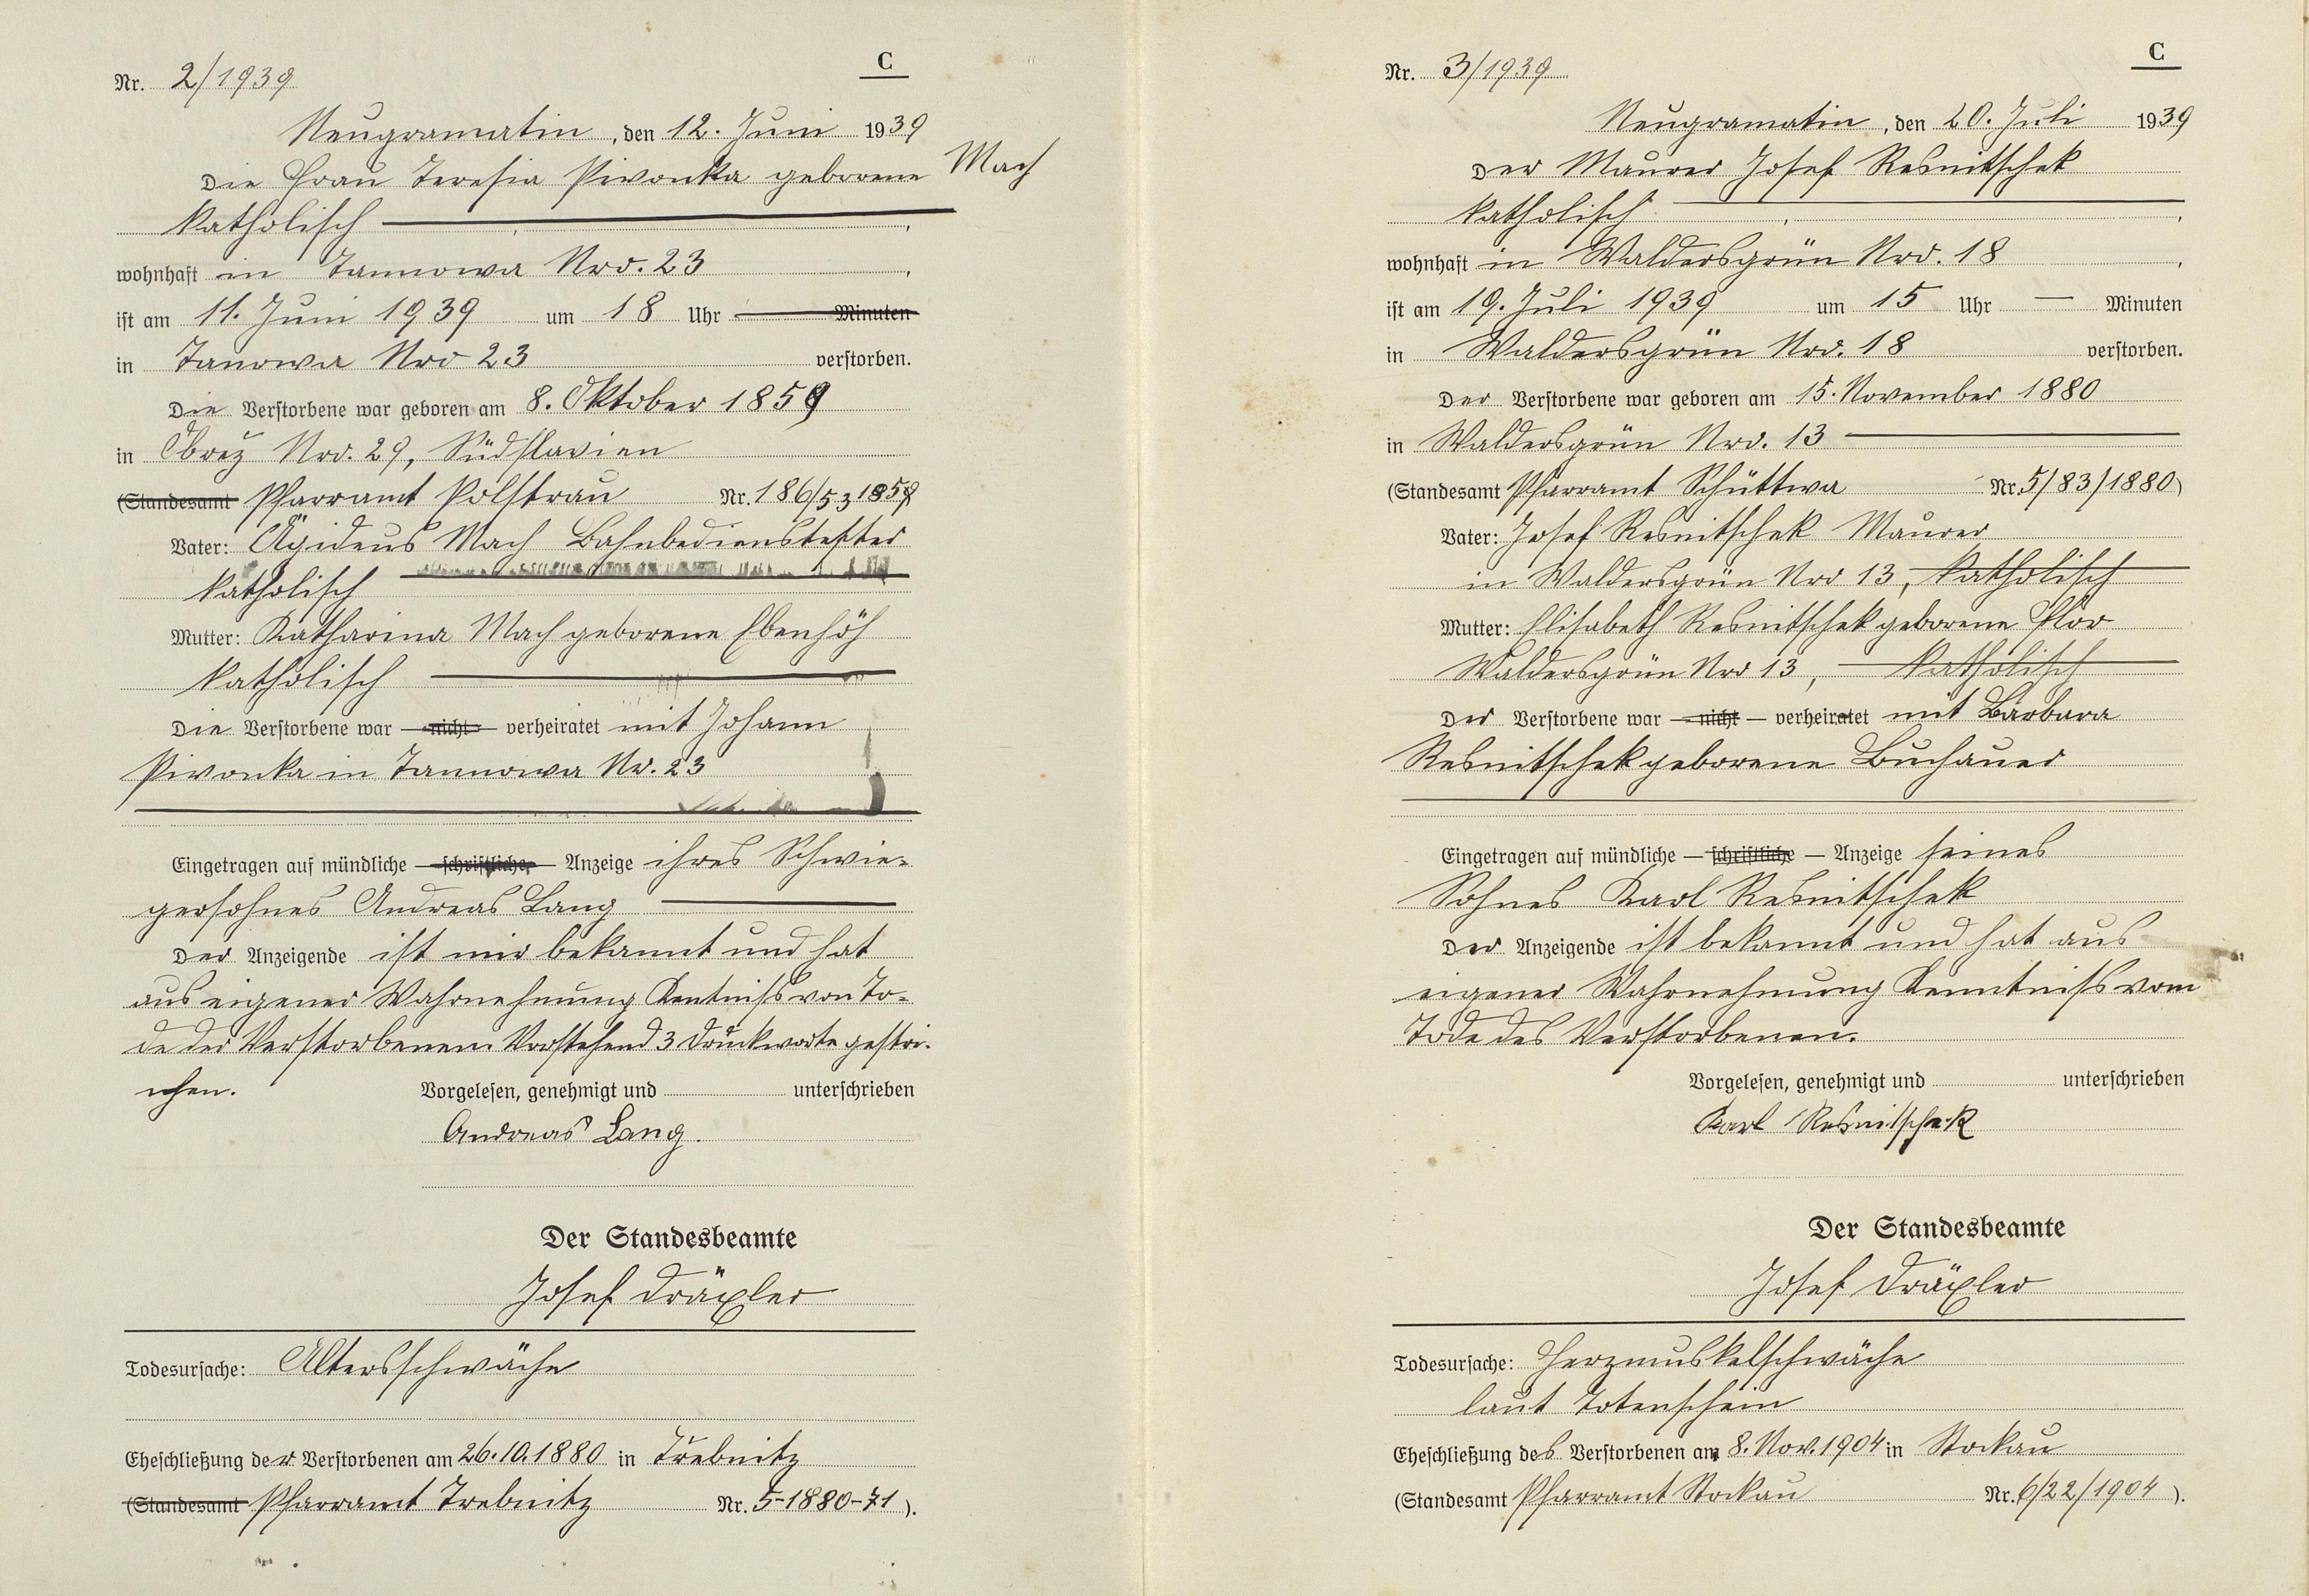 C
Nr. 2/1939
Neugramatin, den 12. Juni 1939
Die Frau Teresia Pivonka geborene Mach
katholisch
wohnhaft in Tannowa Nro. 23
ist am 11. Juni 1939 um 18 Uhr Minuten
in Tanowa Nro 23 verstorben.
Die Verstorbene war geboren am 8. Oktober 1859
in Obrez Nro. 29, Südslavien
(Standesamt Pfarramt Polstrau Nr. 186/53 1859
Vater: Ägideus Mach Bahnbediensteter
katholisch
Mutter: Katharina Mach geborene Ebenhöh
katholisch
Die Verstorbene war — nicht — verheiratet mit Johann
Pivonka in Tannowa Nr. 23
Eingetragen auf mündliche — schriftliche — Anzeige ihres Schwie-
gersohnes Andreas Lang
Der Anzeigende ist mir bekannt und hat
aus eigener Wahrnehmung Kentniss von To-
de der Verstorbenen. Vorstehend 3 Druckworte gestri-
chen. Vorgelesen, genehmigt und unterschrieben
Andreas Lang.
Der Standesbeamte
Josef Dräxler
Todesursache: Altersschwäche
Eheschließung der Verstorbenen am 26.10.1880 in Trebnitz
(Standesamt Pfarramt Trebnitz Nr. 5-1880-71).
C
Nr. 3/1939
Neugramatin, den 20. Juli 1939
Der Maurer Josef Resnitschek
katholisch
wohnhaft in Waldersgrün Nro. 18
ist am 19. Juli 1939 um 15 Uhr — Minuten
in Waldersgrün Nro. 18 verstorben.
Der Verstorbene war geboren am 15. November 1880
in Waldersgrün Nro. 13
(Standesamt Pfarramt Schüttwa Nr. 5/83/1880)
Vater: Josef Resnitschek Maurer
in Waldersgrün Nro 13, katholisch
Mutter: Elisabeth Resnitschek geborene Flor
Waldersgrün Nro 13, katholisch
Der Verstorbene war — nicht — verheiratet mit Barbara
Resnitschek geborene Buchauer
Eingetragen auf mündliche — schriftliche — Anzeige seines
Sohnes Karl Resnitschek
Der Anzeigende ist bekannt und hat aus
eigener Wahrnehmung Kenntniss vom
Tode des Verstorbenen.
Vorgelesen, genehmigt und unterschrieben
Karl Resnitschek
Der Standesbeamte
Josef Dräxler
Todesursache: Herzmuskelschwäche
laut Totenschein
Eheschließung des Verstorbenen am 8. Nov. 1904 in Stockau
(Standesamt Pfarramt Stockau Nr. 6/22/1904).